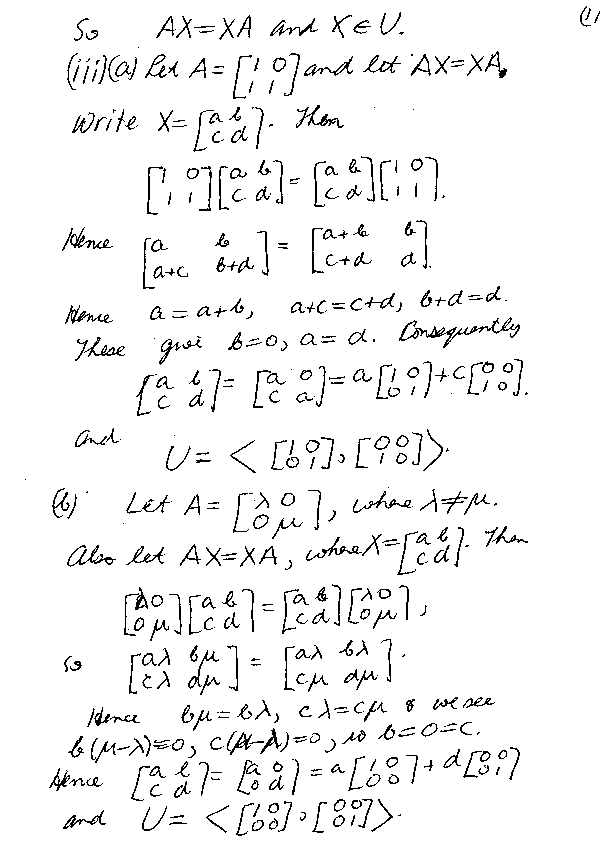 (1)
So AX=XA and X∈U.
(iii)(a) Let A=[1 0; 1 1] and let AX=XA.
Write X=[a b; c d]. Then
[1 0; 1 1][a b; c d]=[a b; c d][1 0; 1 1].
Hence [a b; a+c b+d]=[a+b b; c+d d].
Hence a=a+b, a+c=c+d, b+d=d.
These give b=0, a=d. Consequently
[a b; c d]=[a 0; c a]=a[1 0; 0 1]+c[0 0; 1 0].
and U=<[1 0; 0 1], [0 0; 1 0]>.
(b) Let A=[λ 0; 0 μ], where λ≠μ.
Also let AX=XA, where X=[a b; c d]. Then
[λ 0; 0 μ][a b; c d]=[a b; c d][λ 0; 0 μ],
so [aλ bμ; cλ dμ]=[aλ bλ; cμ dμ].
Hence bμ=bλ, cλ=cμ & we see
b(μ-λ)=0, c(μ-λ)=0, so b=0=c.
Hence [a b; c d]=[a 0; 0 d]=a[1 0; 0 0]+d[0 0; 0 1]
and U=<[1 0; 0 0], [0 0; 0 1]>.